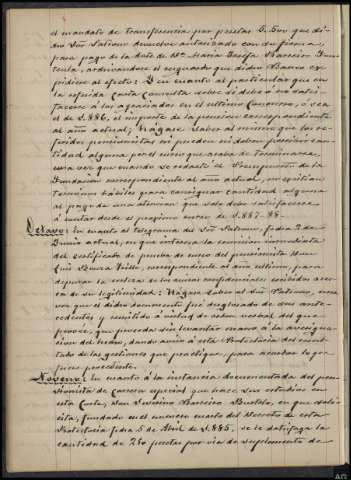 el mandato de transferencia por pesetas 5.500 que di-
cho Sor Patrono devuelve autorizado con su firma,
para pago de la dote de Dª María Josefa Barreiro
, ordenándose el resguardo que dicho Banco ex-
pidiese al efecto: Y en cuanto al particular que en
la referida Carta Consulta sobre si debe ó no satis-
facerse á los agraciados en el último Concurso, ó sea
el de 1.886, el importe de la pension correspondiente
al año actual; Hágase saber al mismo que los re-
feridos pensionistas ni pueden ni deben percibir can-
tidad alguna por el curso que acaba de terminarse,
una vez que cuando se redactó el Presupuesto de la
Fundación correspondiente al año actual, no existían
términos hábiles para consignar cantidad alguna
al pago de una atencion que solo debe satisfacerse
á contar desde el proximo curso de 1.887-88.-
Octavo: En cuanto al telegrama del Sor Patrono, fecha 2 de
Junio actual, en que interesa la remision inmediata
del certificado de prueba de curso del pensionista Don
Luis Villo, correspondiente al año último, para
depurar la certeza de los rumores confidenciales recibidos acer-
ca de su legitimidad: Hágase saber al Sor Patrono, una
vez que el dicho documento fué desglosado de sus ante-
cedentes y remitido á virtud de orden verbal del que
provee, que proceda sin levantar mano á la averigua-
cion del hecho, dando aviso á este Protectoria del resul-
tado de las gestiones que practique, para acordar lo que
fuere procedente.
Noveno: En cuanto á la instancia documentada del pen-
sionista de Carrera especial que hace sus estudios en
esta Corte, Don Severino Barreiro Bustelo, en que soli-
cita, fundado en el número cuarto del Decreto de esta
Protectoria fecha 5 de Abril de 1.885, se le satisfaga la
cantidad de 250 pesetas por via de suplemento de